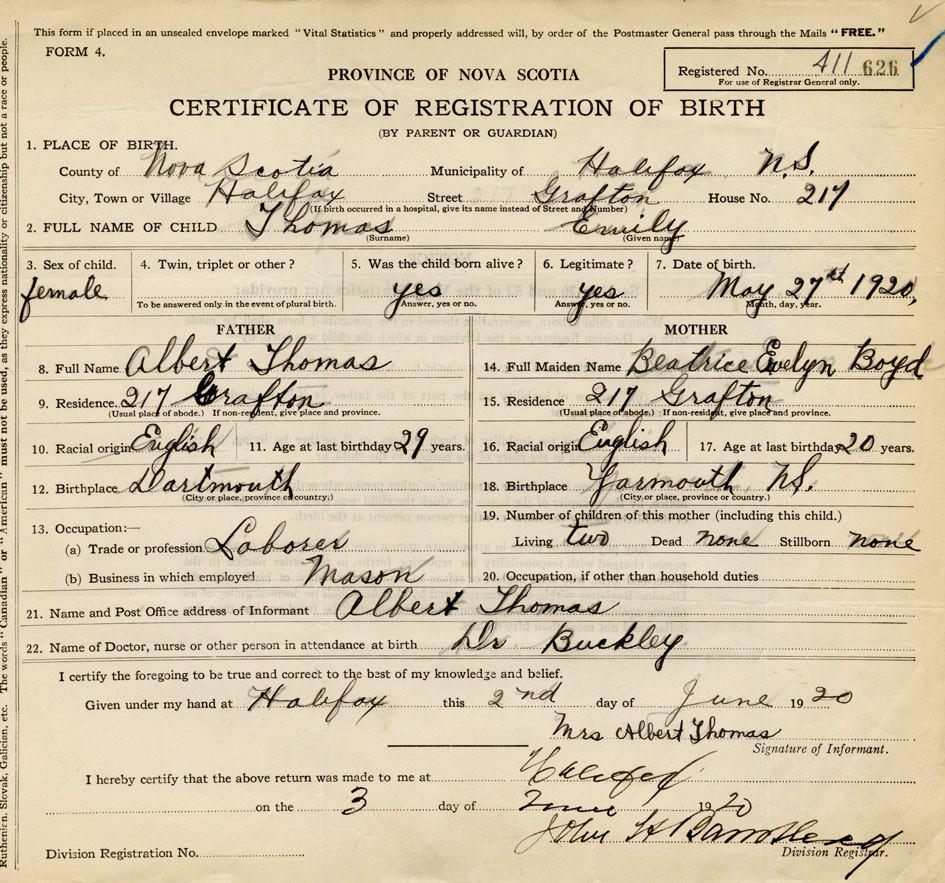 This form if placed in an unsealed envelope marked "Vital Statistics" and properly addressed will, by order of the Postmaster General pass through the Mails "FREE."
FORM 4.
Registered No. 411 626
For use of Registrar General only.
PROVINCE OF NOVA SCOTIA
CERTIFICATE OF REGISTRATION OF BIRTH
(BY PARENT OR GUARDIAN)
1. PLACE OF BIRTH.
County of Nova Scotia Municipality of Halifax N.S.
City, Town or Village Halifax Street Grafton House No. 217
(If birth occurred in a hospital, give its name instead of Street and Number)
2. FULL NAME OF CHILD Thomas Emily
(Surname) (Given name)
3. Sex of child. 4. Twin, triplet or other? 5. Was the child born alive? 6. Legitimate? 7. Date of birth.
female yes yes May 27th 1920,
To be answered only in the event of plural birth. Answer, yes or no. Answer, yes or no. Month, day, year.
FATHER MOTHER
8. Full Name Albert Thomas 14. Full Maiden Name Beatrice Evelyn Boyd
9. Residence. 217 Grafton 15. Residence 217 Grafton
(Usual place of abode.) If non-resident, give place and province. (Usual place of abode.) If non-resident, give place and province.
10. Racial origin English 11. Age at last birthday 29 years. 16. Racial origin English 17. Age at last birthday 20 years.
12. Birthplace Dartmouth 18. Birthplace Yarmouth NS.
(City or place, province or country.) (City or place, province or country.)
13. Occupation:— 19. Number of children of this mother (including this child.)
(a) Trade or profession Laborer Living two Dead none Stillborn none
(b) Business in which employed Mason 20. Occupation, if other than household duties
21. Name and Post Office address of Informant Albert Thomas
22. Name of Doctor, nurse or other person in attendance at birth Dr Buckley
I certify the foregoing to be true and correct to the best of my knowledge and belief.
Given under my hand at Halifax this 2nd day of June 1920
Mrs Albert Thomas
Signature of Informant.
I hereby certify that the above return was made to me at Halifax
on the 3 day of June 1920
John H
Division Registration No. Division Registrar.
Ruthenian, Slovak, Galician, etc. The words "Canadian" or "American" must not be used, as they express nationality or citizenship but not a race or people.